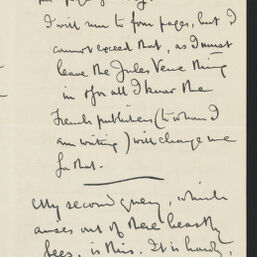 I will run to four pages, but I
cannot exceed that, as I must
leave the Jules Verne thing
in & for all I know the
French publishers (to whom I
am writing) will charge me
for that.
My second query, which
arises out of these beastly
fees, is this. It is hardly,